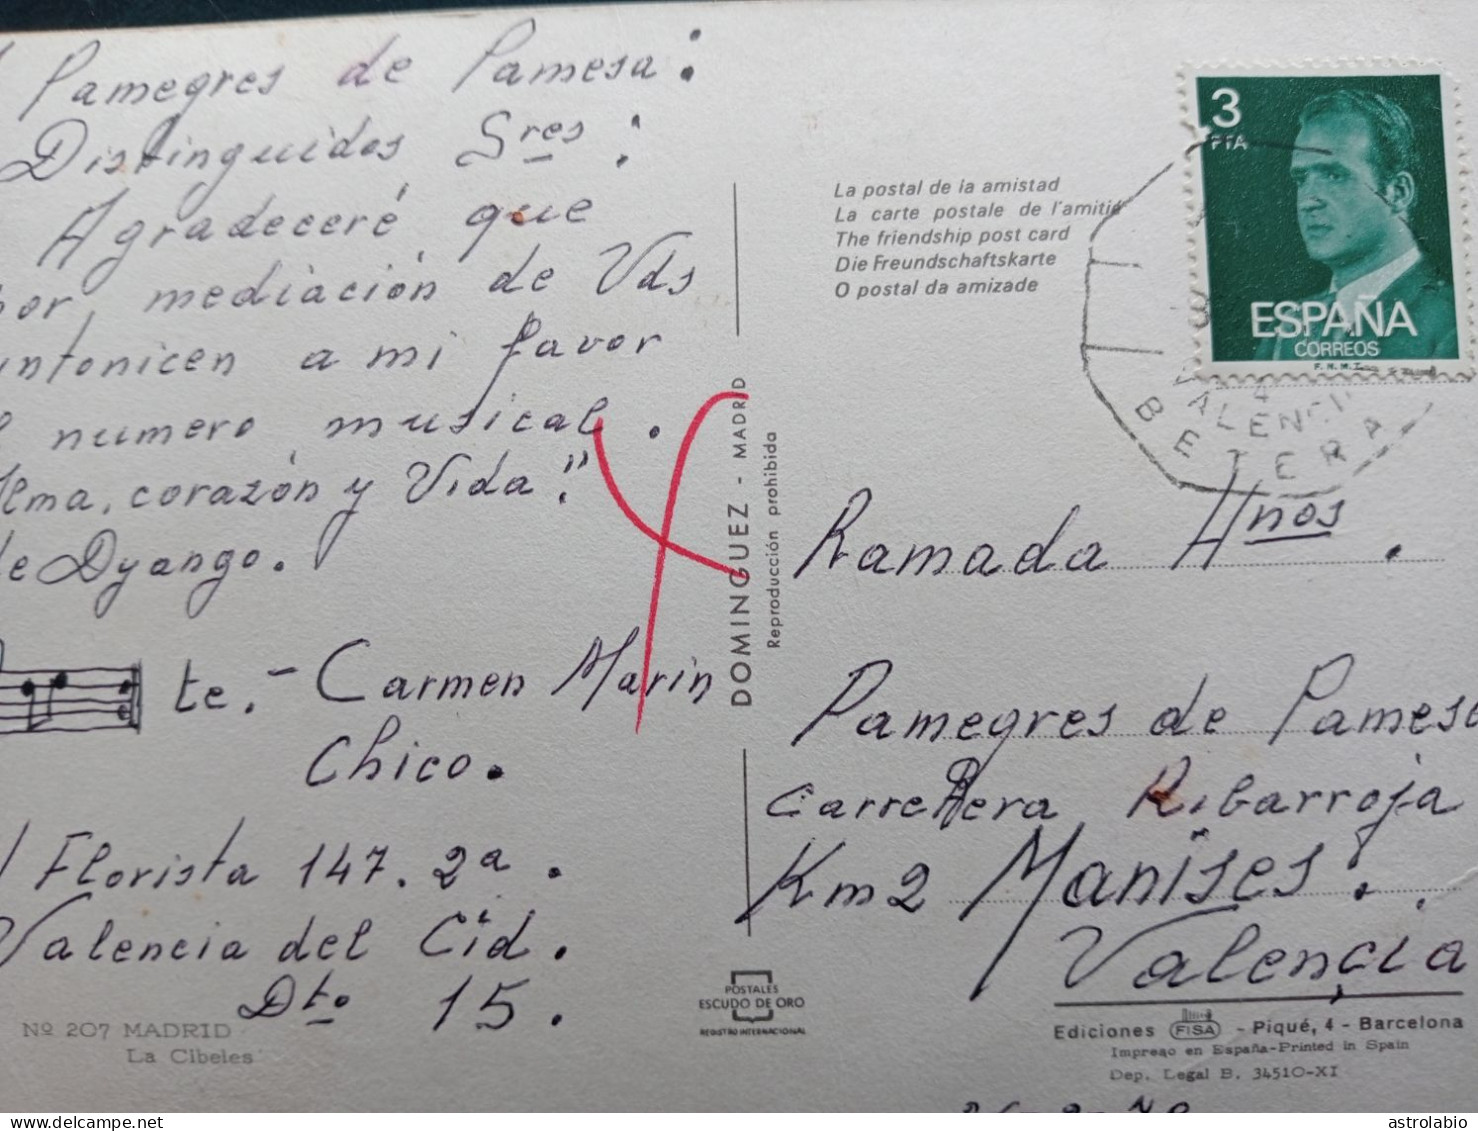 Pamegres de Pamesa:
Distinguidos Sres:
Agradeceré que
por mediación de Vds
intonicen a mi favor
numero musical.
Alma, corazón y Vida".
de Dyango.
te.- Carmen Marin
Chico.
Florista 147. 2ª.
Valencia del Cid.
Dto 15.
Nº 207 MADRID
La Cibeles
DOMINGUEZ - MADRID
Reproducción prohibida
POSTALES
ESCUDO DE ORO
REGISTRO INTERNACIONAL
3
PTA
ESPAÑA
CORREOS
F.N.M.T.
La postal de la amistad
La carte postale de l'amitié
The friendship post card
Die Freundschaftskarte
O postal da amizade
VALENCIA
BETERA
Ramada Hnos.
Pamegres de Pamesa
Carretera Ribarroja
Km 2 Manises.
Valencia
Ediciones FISA - Piqué, 4 - Barcelona
Impreso en España-Printed in Spain
Dep. Legal B. 34510-XI
astrolabio